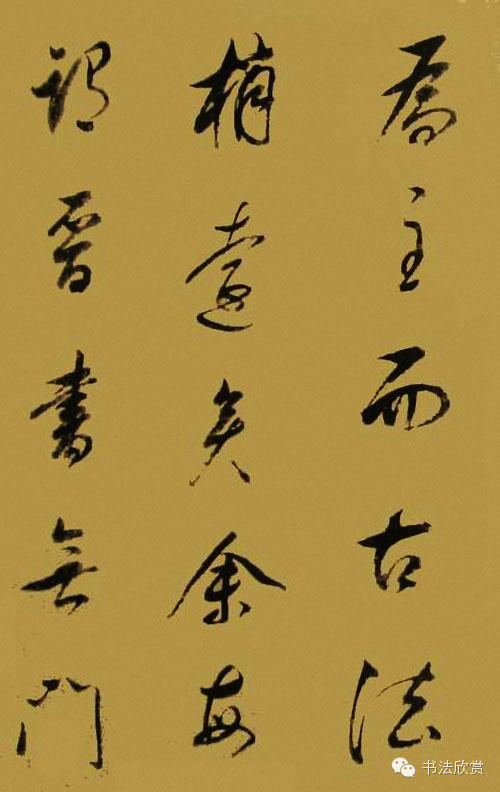 主而古法
稍遠矣余每
謂晉書無門
书法欣赏